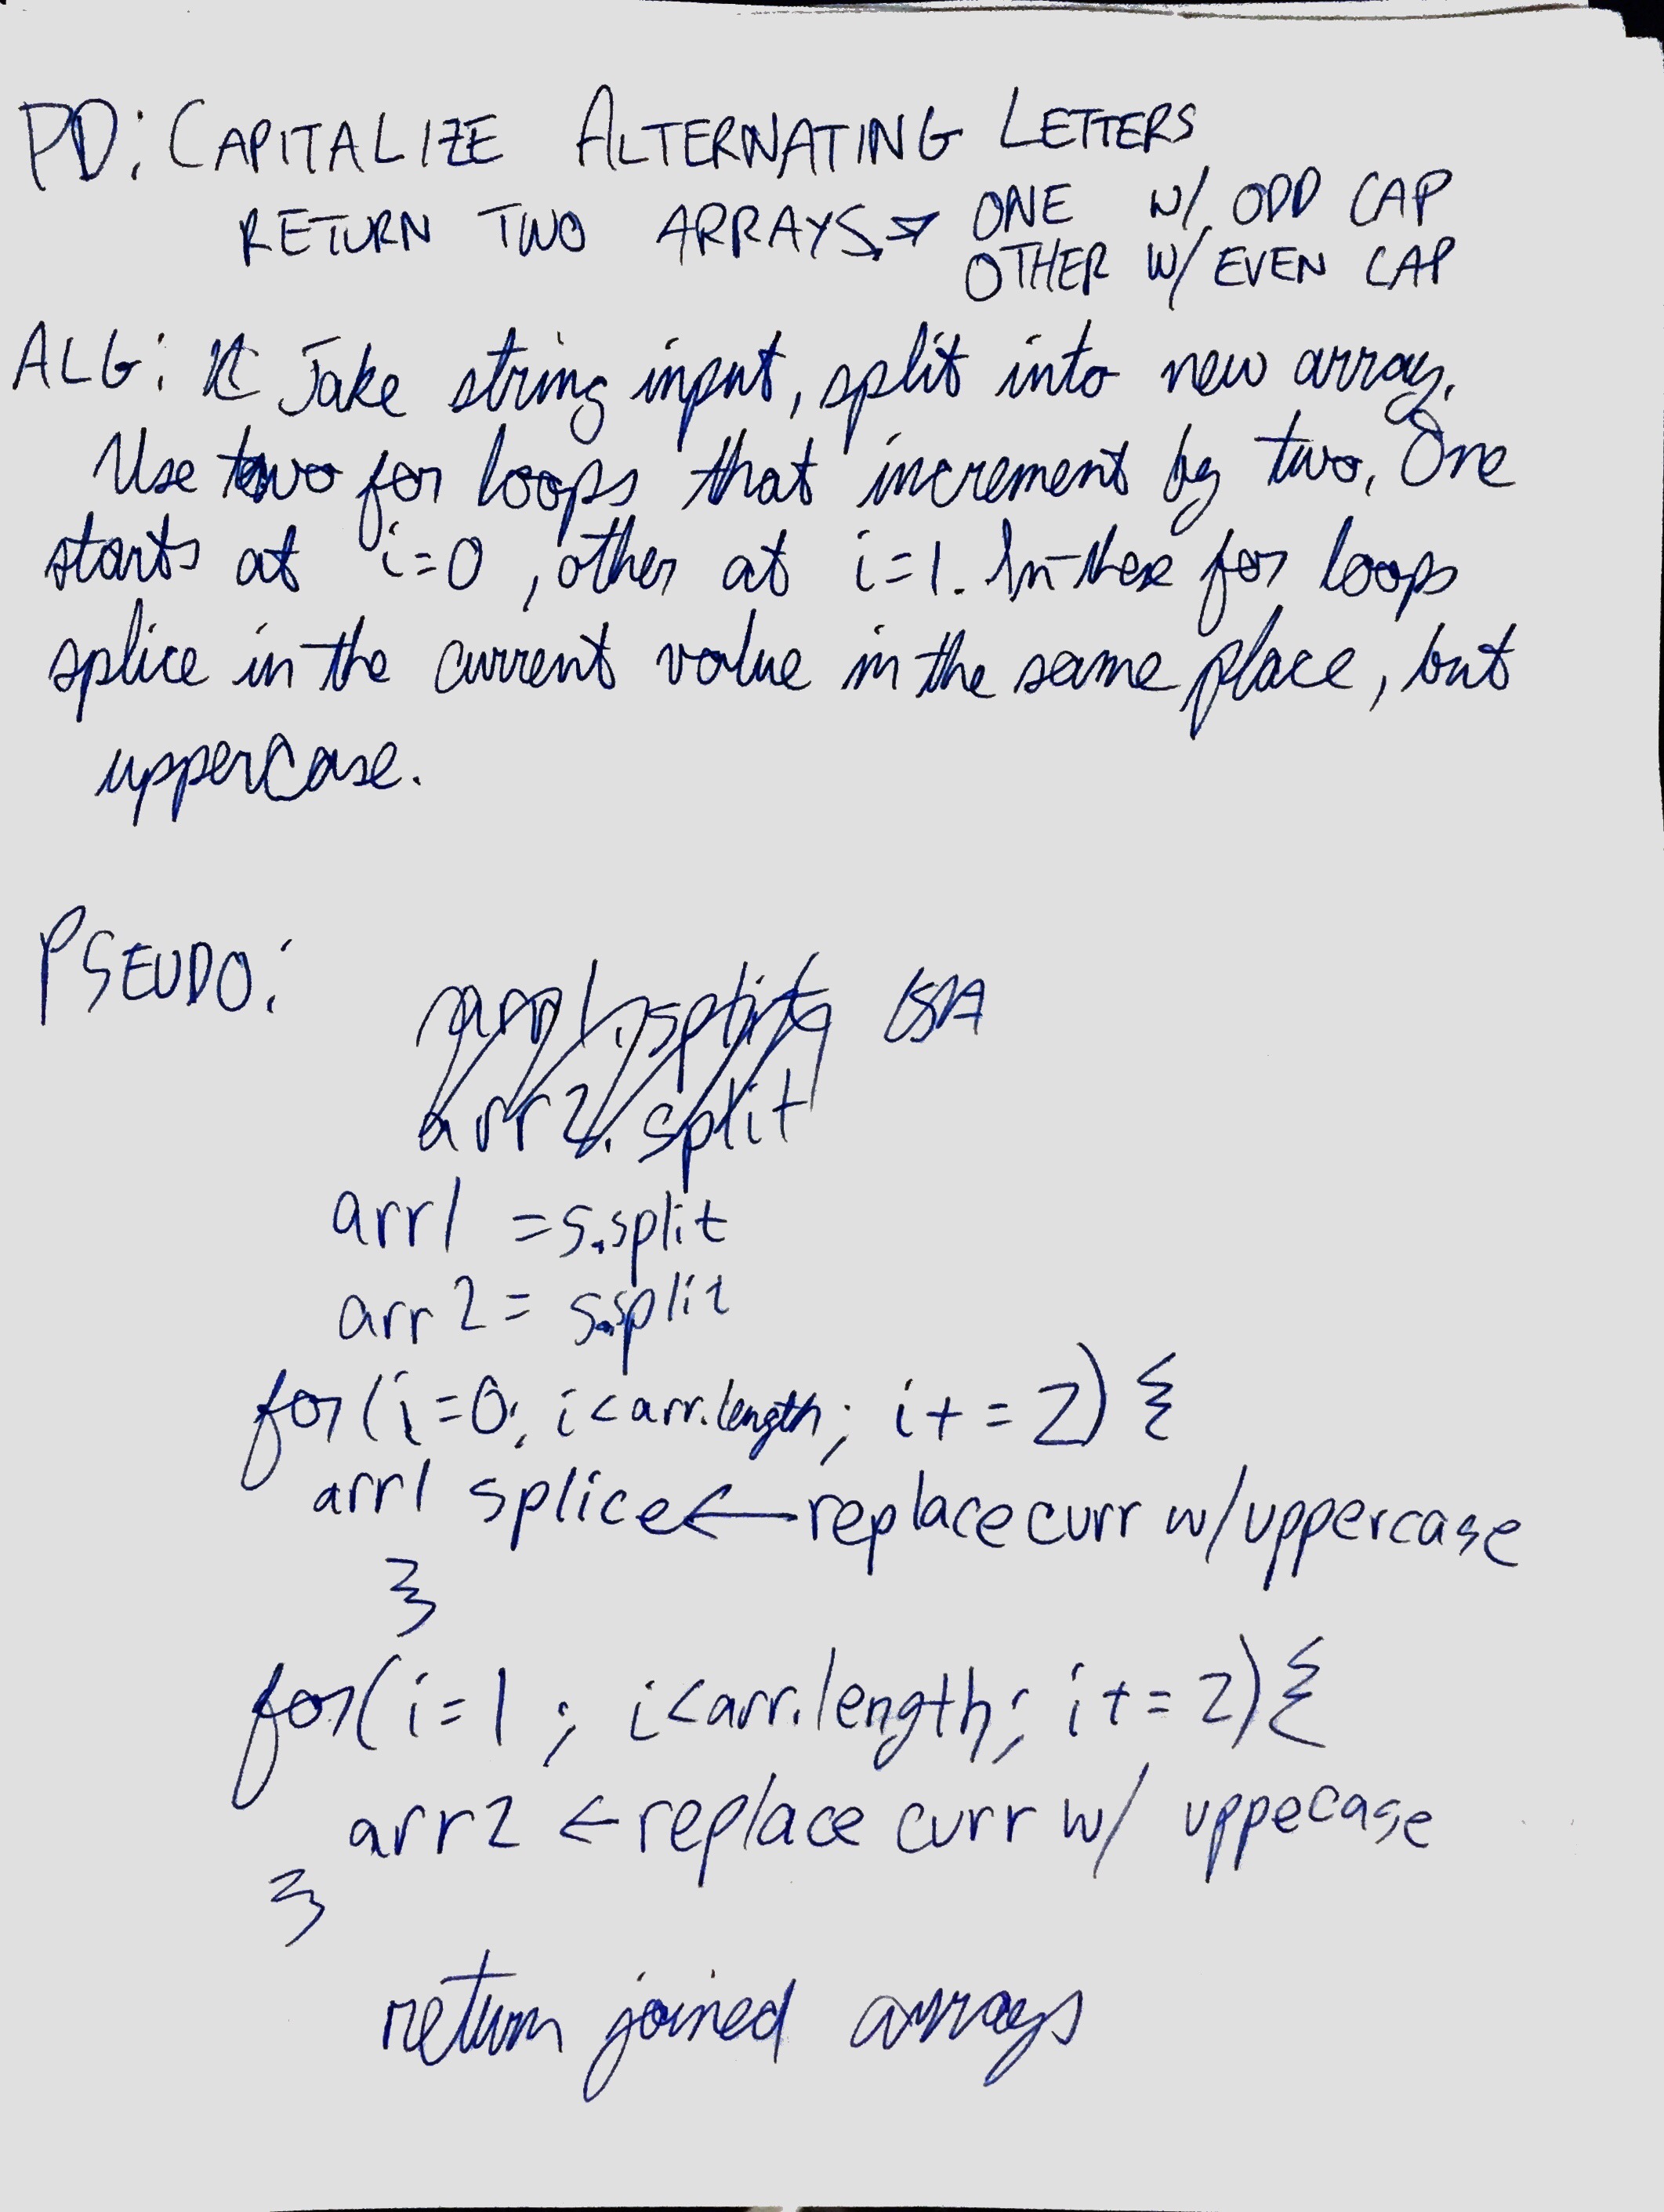 PD: CAPITALIZE ALTERNATING LETTERS
RETURN TWO ARRAYS → ONE W/ ODD CAP
OTHER W/ EVEN CAP
ALG: Take string input, split into new array.
Use two for loops that increment by two, One
starts at i=0, other at i=1. In these for loops
splice in the current value in the same place, but
upperCase.
PSEUDO:
arr2.split
arr1 = s.split
arr2 = s.split
for(i=0; i<arr.length; i+=2){
arr1 splice ← replace curr w/uppercase
}
for(i=1; i<arr.length; i+=2){
arr2 ← replace curr w/ uppecase
}
return joined arrays